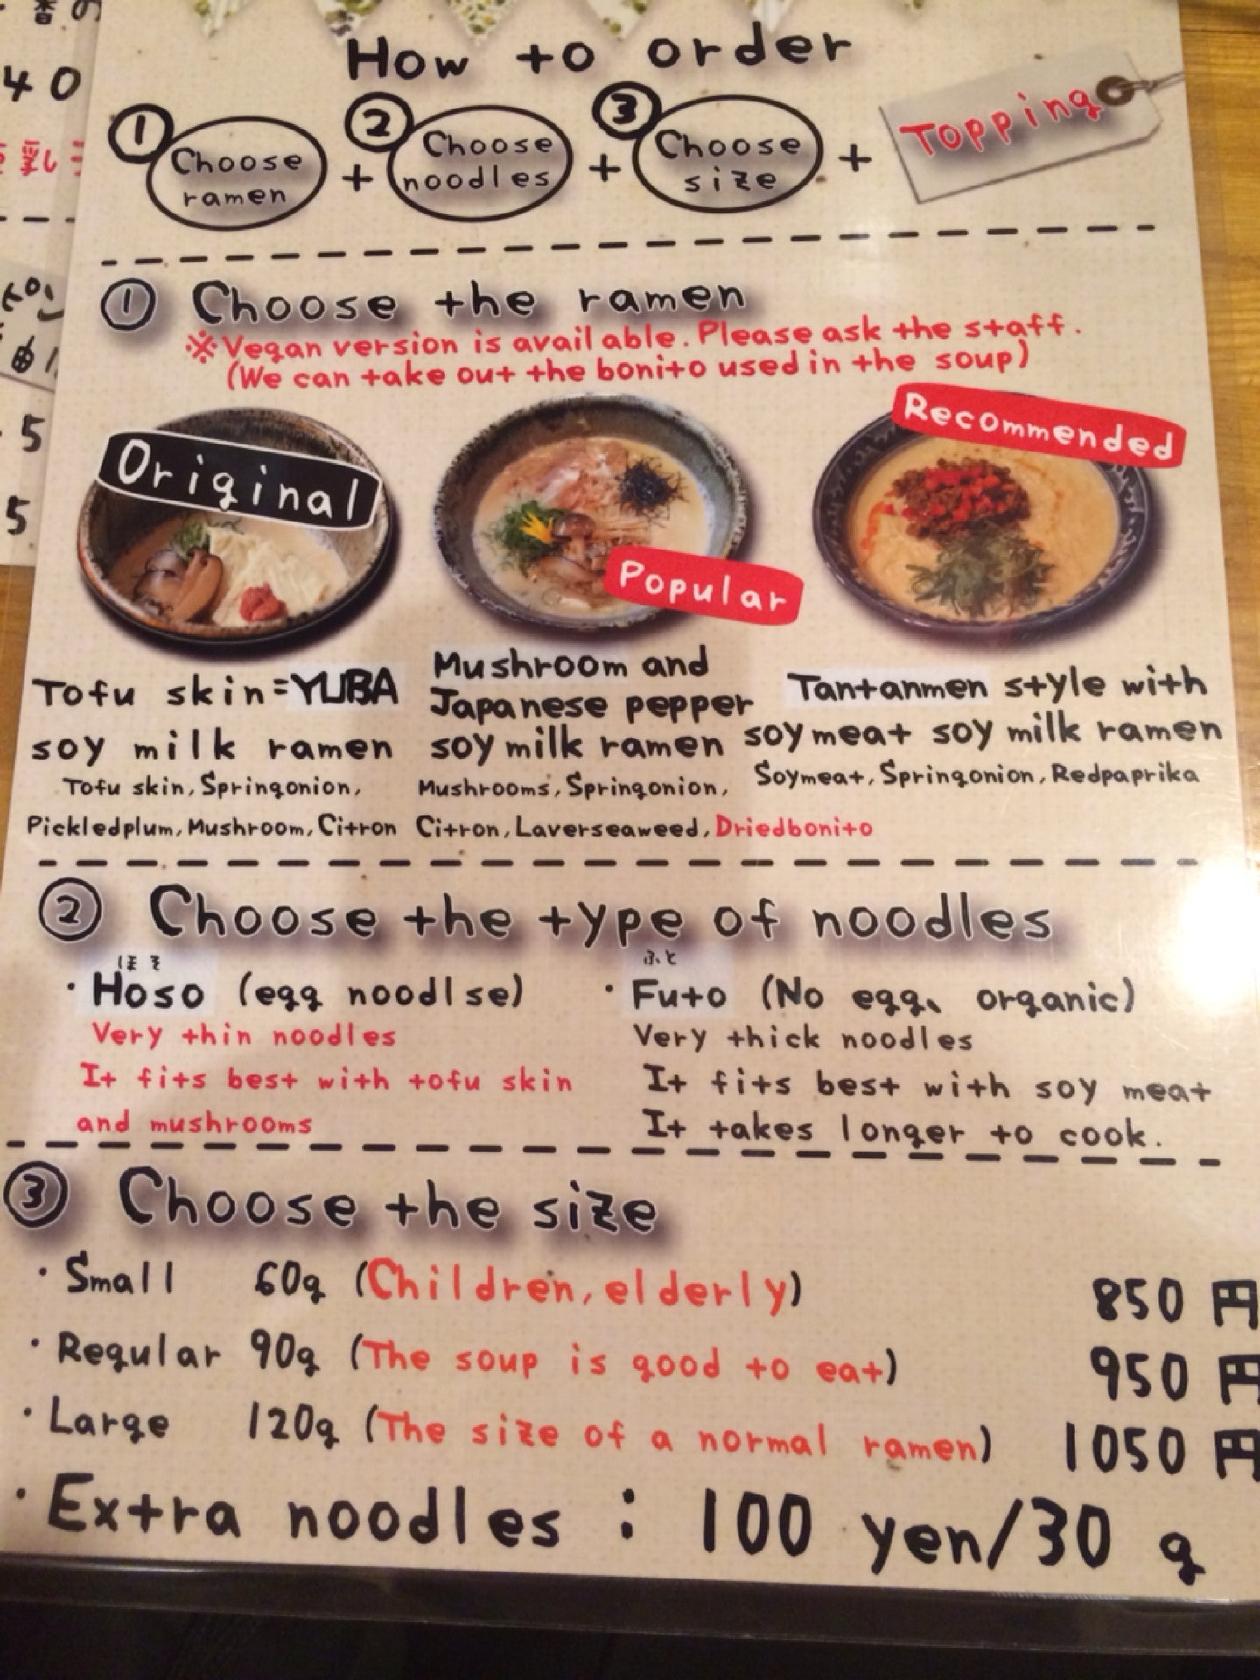 番の
40
How to order
① Choose ramen + ② Choose noodles + ③ Choose size + Topping
① Choose the ramen
※Vegan version is available. Please ask the staff.
(We can take out the bonito used in the soup)
Original
Popular
Recommended
5
5
Tofu skin=YUBA
soy milk ramen
Tofu skin, Springonion,
Pickledplum, Mushroom, Citron
Mushroom and
Japanese pepper
soy milk ramen
Mushrooms, Springonion,
Citron, Laverseaweed, Driedbonito
Tantanmen style with
soymeat soy milk ramen
Soymeat, Springonion, Redpaprika
② Choose the type of noodles
ほそ
・Hoso (egg noodlse)
Very thin noodles
It fits best with tofu skin
and mushrooms
ふと
・Futo (No egg、organic)
Very thick noodles
It fits best with soy meat
It takes longer to cook.
③ Choose the size
・Small 60g (Children, elderly) 850 円
・Regular 90g (The soup is good to eat) 950 円
・Large 120g (The size of a normal ramen) 1050 円
・Extra noodles : 100 yen/30 g